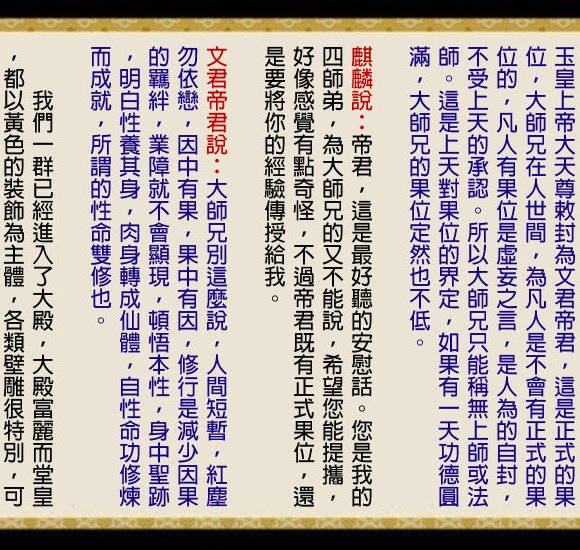 玉皇上帝大天尊敕封為文君帝君，這是正式的果
位，大師兄在人世間，為凡人是不會有正式的果
位的，凡人有果位是虛妄之言，是人為的自封，
不受上天的承認。所以大師兄只能稱無上師或法
師。這是上天對果位的界定，如果有一天功德圓
滿，大師兄的果位定然也不低。
麒麟說：帝君，這是最好聽的安慰話。您是我的
四師弟，為大師兄的又不能說，希望您能提攜，
好像感覺有點奇怪，不過帝君既有正式果位，還
是要將你的經驗傳授給我。
文君帝君說：大師兄別這麼說，人間短暫，紅塵
勿依戀，因中有果，果中有因，修行是減少因果
的羈絆，業障就不會顯現，頓悟本性，身中聖跡
，明白性養其身，肉身轉成仙體，自性命功修煉
而成就，所謂的性命雙修也。
我們一群已經進入了大殿，大殿富麗而堂皇
，都以黃色的裝飾為主體，各類壁雕很特別，可